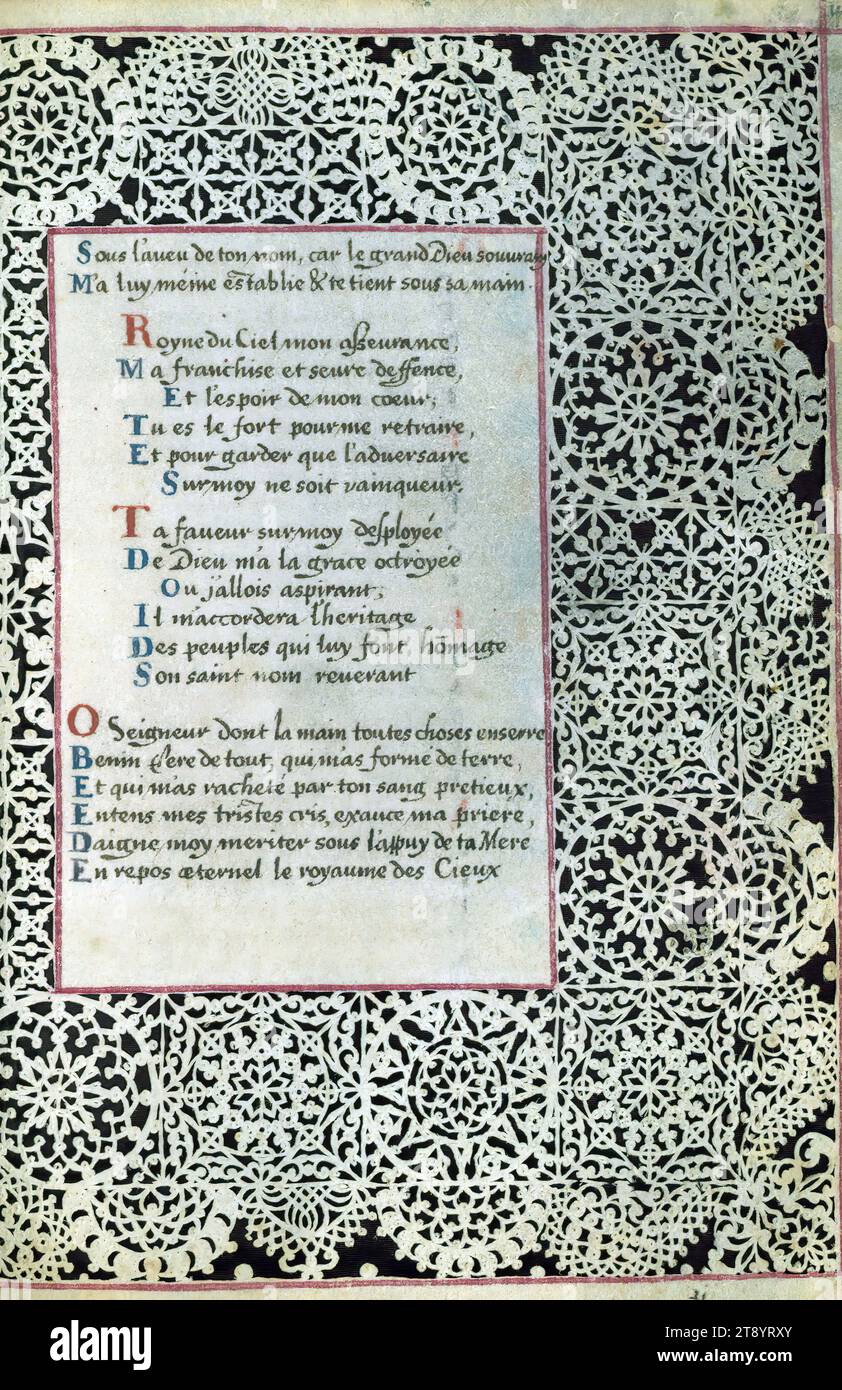 Sous l'aveu de ton nom, car le grand Dieu souvrain
M'a luy méme establie & te tient sous sa main.
Royne du Ciel mon asseurance,
Ma franchise et seure deffence,
Et l'espoir de mon coeur;
Tu es le fort pour me retraire,
Et pour garder que l'adversaire
Sur moy ne soit vainqueur.
Ta faveur sur moy desployée
De Dieu m'a la grace octroyée
Ou j'allois aspirant;
Il m'accordera l'heritage
Des peuples qui luy font hōmage
Son saint nom reverant
O Seigneur dont la main toutes choses enserre
Benin Pere de tout, qui m'as formé de terre,
Et qui m'as racheté par ton sang pretieux,
Entens mes tristes cris, exauce ma priere,
Daigne moy meriter sous l'appuy de ta Mere
En repos æternel le royaume des Cieux
alamy
Image ID: 2T8YRXY
www.alamy.com